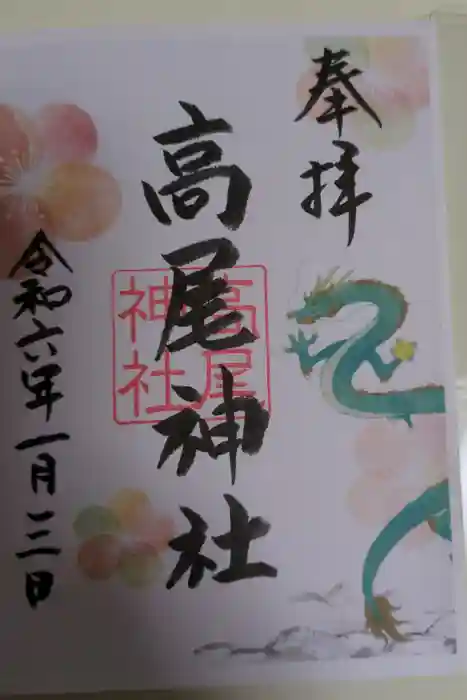 奉拝
高尾神社
高尾
神社
令和六年一月三日